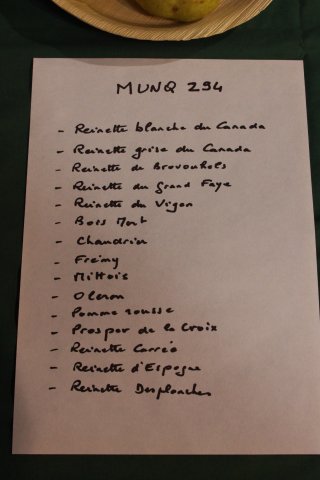 MUNQ 294
- Reinette blanche du Canada
- Reinette grise du Canada
- Reinette de
- Reinette du grand Faye
- Reinette du Vigan
- Bois Mort
- Chandrier
- Fremy
- Mittois
- Oleron
- Pomme rousse
- Prosper de la Croix
- Reinette Carrée
- Reinette d'Espagne
- Reinette Desplanches